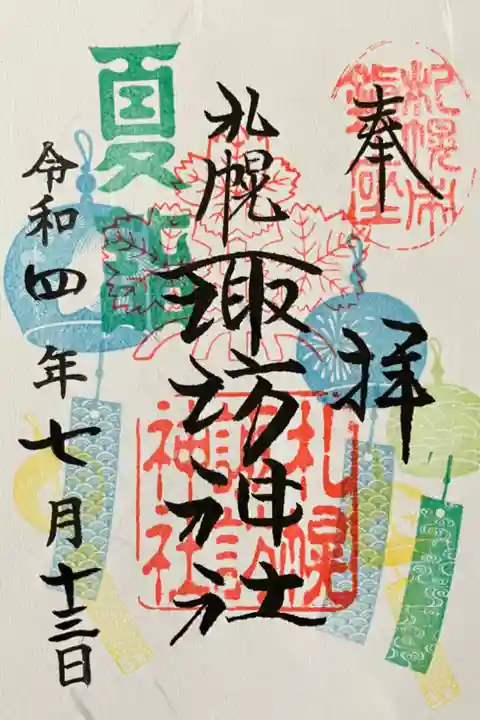 奉拝
札幌諏訪神社
札幌諏訪神社
夏詣
令和四年七月十三日